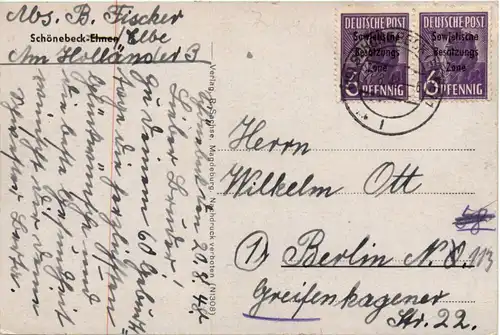 Abs. B. Fischer
Schönebeck-Elmen Elbe
Am Holländer 3
DEUTSCHE POST
Sowjetische
Besatzungs
Zone
6 PFENNIG
DEUTSCHE POST
Sowjetische
Besatzungs
Zone
6 PFENNIG
Herrn
Wilhelm Ott
58
1 Berlin N.O. 113
Greifenhagener
Str. 22.
Verlag B. Seehse, Magdeburg Nachdruck verboten (N/308)
20.8.48.
Lieber Bruder!
Zu deinem 60 Geburts=
tage die herzlichsten
Glückwünsche und
die beste Gesundheit
wünscht dir deine
Schwester